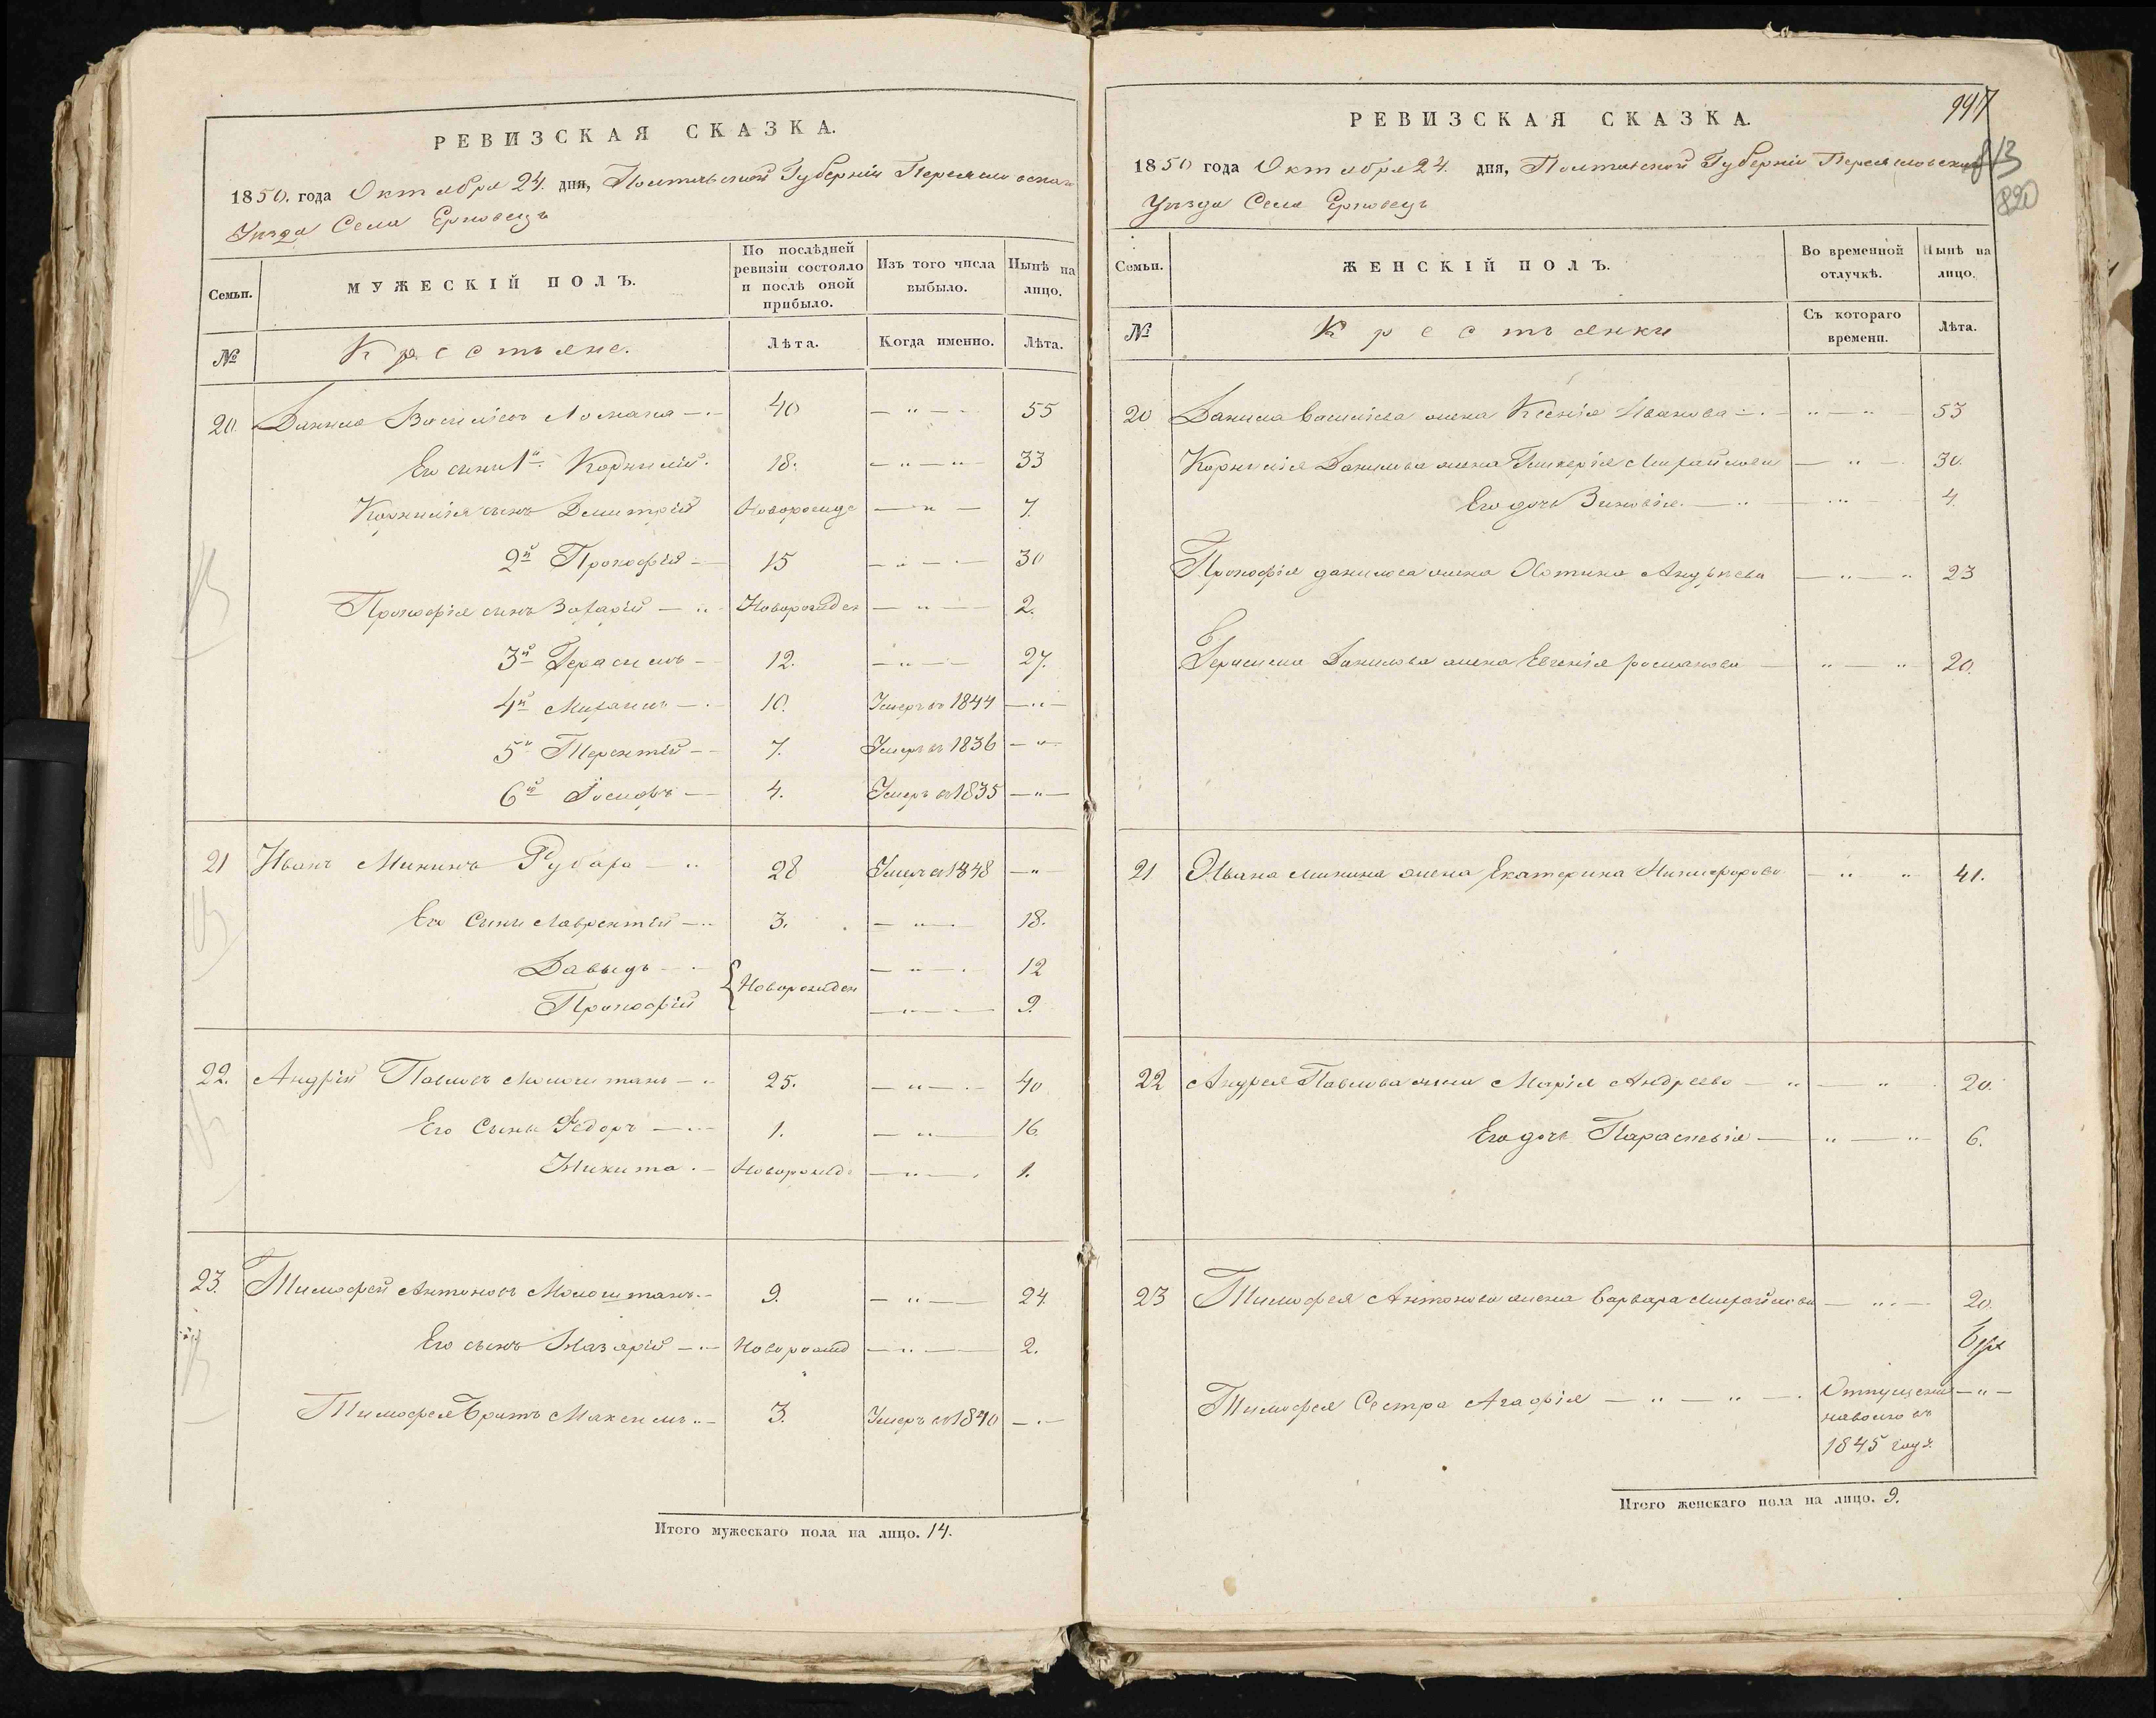 РЕВИЗСКАЯ СКАЗКА.
1850. года Октября 24. дня, Полтавской Губерніи Переяславскаго
Уѣзда Села Ерковецъ
Семьи. МУЖЕСКІЙ ПОЛЪ. По послѣдней ревизіи состояло и послѣ оной прибыло. Изъ того числа выбыло. Нынѣ на лицо.
№ Крестьяне. Лѣта. Когда именно. Лѣта.
20. Данило Васильевъ 40 — " — 55
Его сыны 1й Корнилій. 18. — " — " 33
Корнилія сынъ Димитрій Новорожде — " — 7.
2й Прокофій — 15 — " — 30
Прокофія сынъ Захарій — " Новорожден — " — 2.
3й Герасимъ — 12. — " — 27.
4й Михаилъ — 10. Умеръ въ 1844 — " —
5й Терентій — 7. Умеръ въ 1836 — " —
6й Іосифъ — 4. Умеръ въ 1835 — " —
21 Иванъ Мининъ Рубаха — " 28 Умеръ въ 1848 — "
Его Сыны Лаврентій — 3. — " — 18.
Давыдъ — { Новорожден — " — 12
Прокофій — " — 9.
22. Андрій Павловъ Молоштанъ — 25. — " — 40
Его Сыны Федоръ — 1. — " — 16.
Никита. — Новорожд — " — 1.
23. Тимофей Антоновъ Молоштанъ. — 9. — " — 24.
Его сынъ Назарій — Новорожд — " — 2.
Тимофея Братъ Максимъ " — 3. Умеръ въ 1840 — " —
Итого мужескаго пола на лицо. 14.
997
813
820
РЕВИЗСКАЯ СКАЗКА.
1850 года Октября 24. дня, Полтавской Губерніи Переясловскаго
Уѣзда Села Ерковецъ
Семьи. ЖЕНСКІЙ ПОЛЪ. Во временной отлучкѣ. Нынѣ на лицо.
№ Крестьянки Съ котораго времени. Лѣта.
20 Данила Васильева жена Ксенія Иванова — " — " 53
Корнилія Данилова жена Гликерія Михайлова — " — 30.
Его дочь Зиновія. — " — " 4.
Прокофія Данилова жена Хотина Андрѣева — " — " 23
Герасима Данилова жена Евгенія Романова — " — " 20.
21 Ивана Минина жена Екатерина Никифорова — " " 41.
22 Андрея Павлова жена Марія Андреева — " — " 20.
Его дочь Параскевія — " — " 6.
23 Тимофея Антонова жена Варвара Михайлова — " — 20.
Тимофея Сестра Агафія — " — " — Отпущена — " —
на волю въ
1845 году.
Итого женскаго пола на лицо. 9.